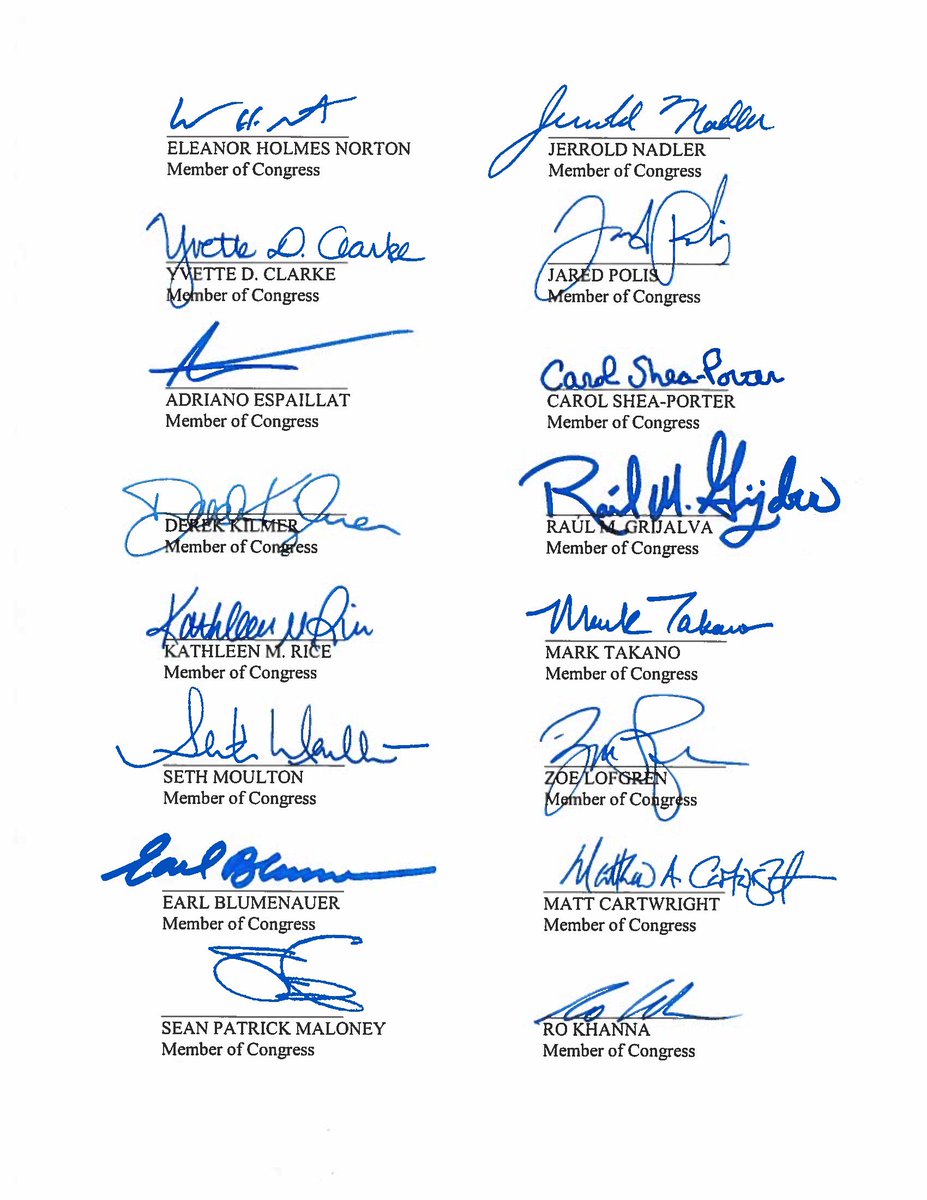 ELEANOR HOLMES NORTON
Member of Congress
Jerrold Nadler
JERROLD NADLER
Member of Congress
Yvette D. Clarke
YVETTE D. CLARKE
Member of Congress
Jared Polis
JARED POLIS
Member of Congress
ADRIANO ESPAILLAT
Member of Congress
Carol Shea-Porter
CAROL SHEA-PORTER
Member of Congress
Derek Kilmer
DEREK KILMER
Member of Congress
Raúl M. Grijalva
RAÚL M. GRIJALVA
Member of Congress
Kathleen M Rice
KATHLEEN M. RICE
Member of Congress
Mark Takano
MARK TAKANO
Member of Congress
Seth Moulton
SETH MOULTON
Member of Congress
ZOE LOFGREN
Member of Congress
Earl Blumenauer
EARL BLUMENAUER
Member of Congress
Matthew A. Cartwright
MATT CARTWRIGHT
Member of Congress
SEAN PATRICK MALONEY
Member of Congress
RO KHANNA
Member of Congress